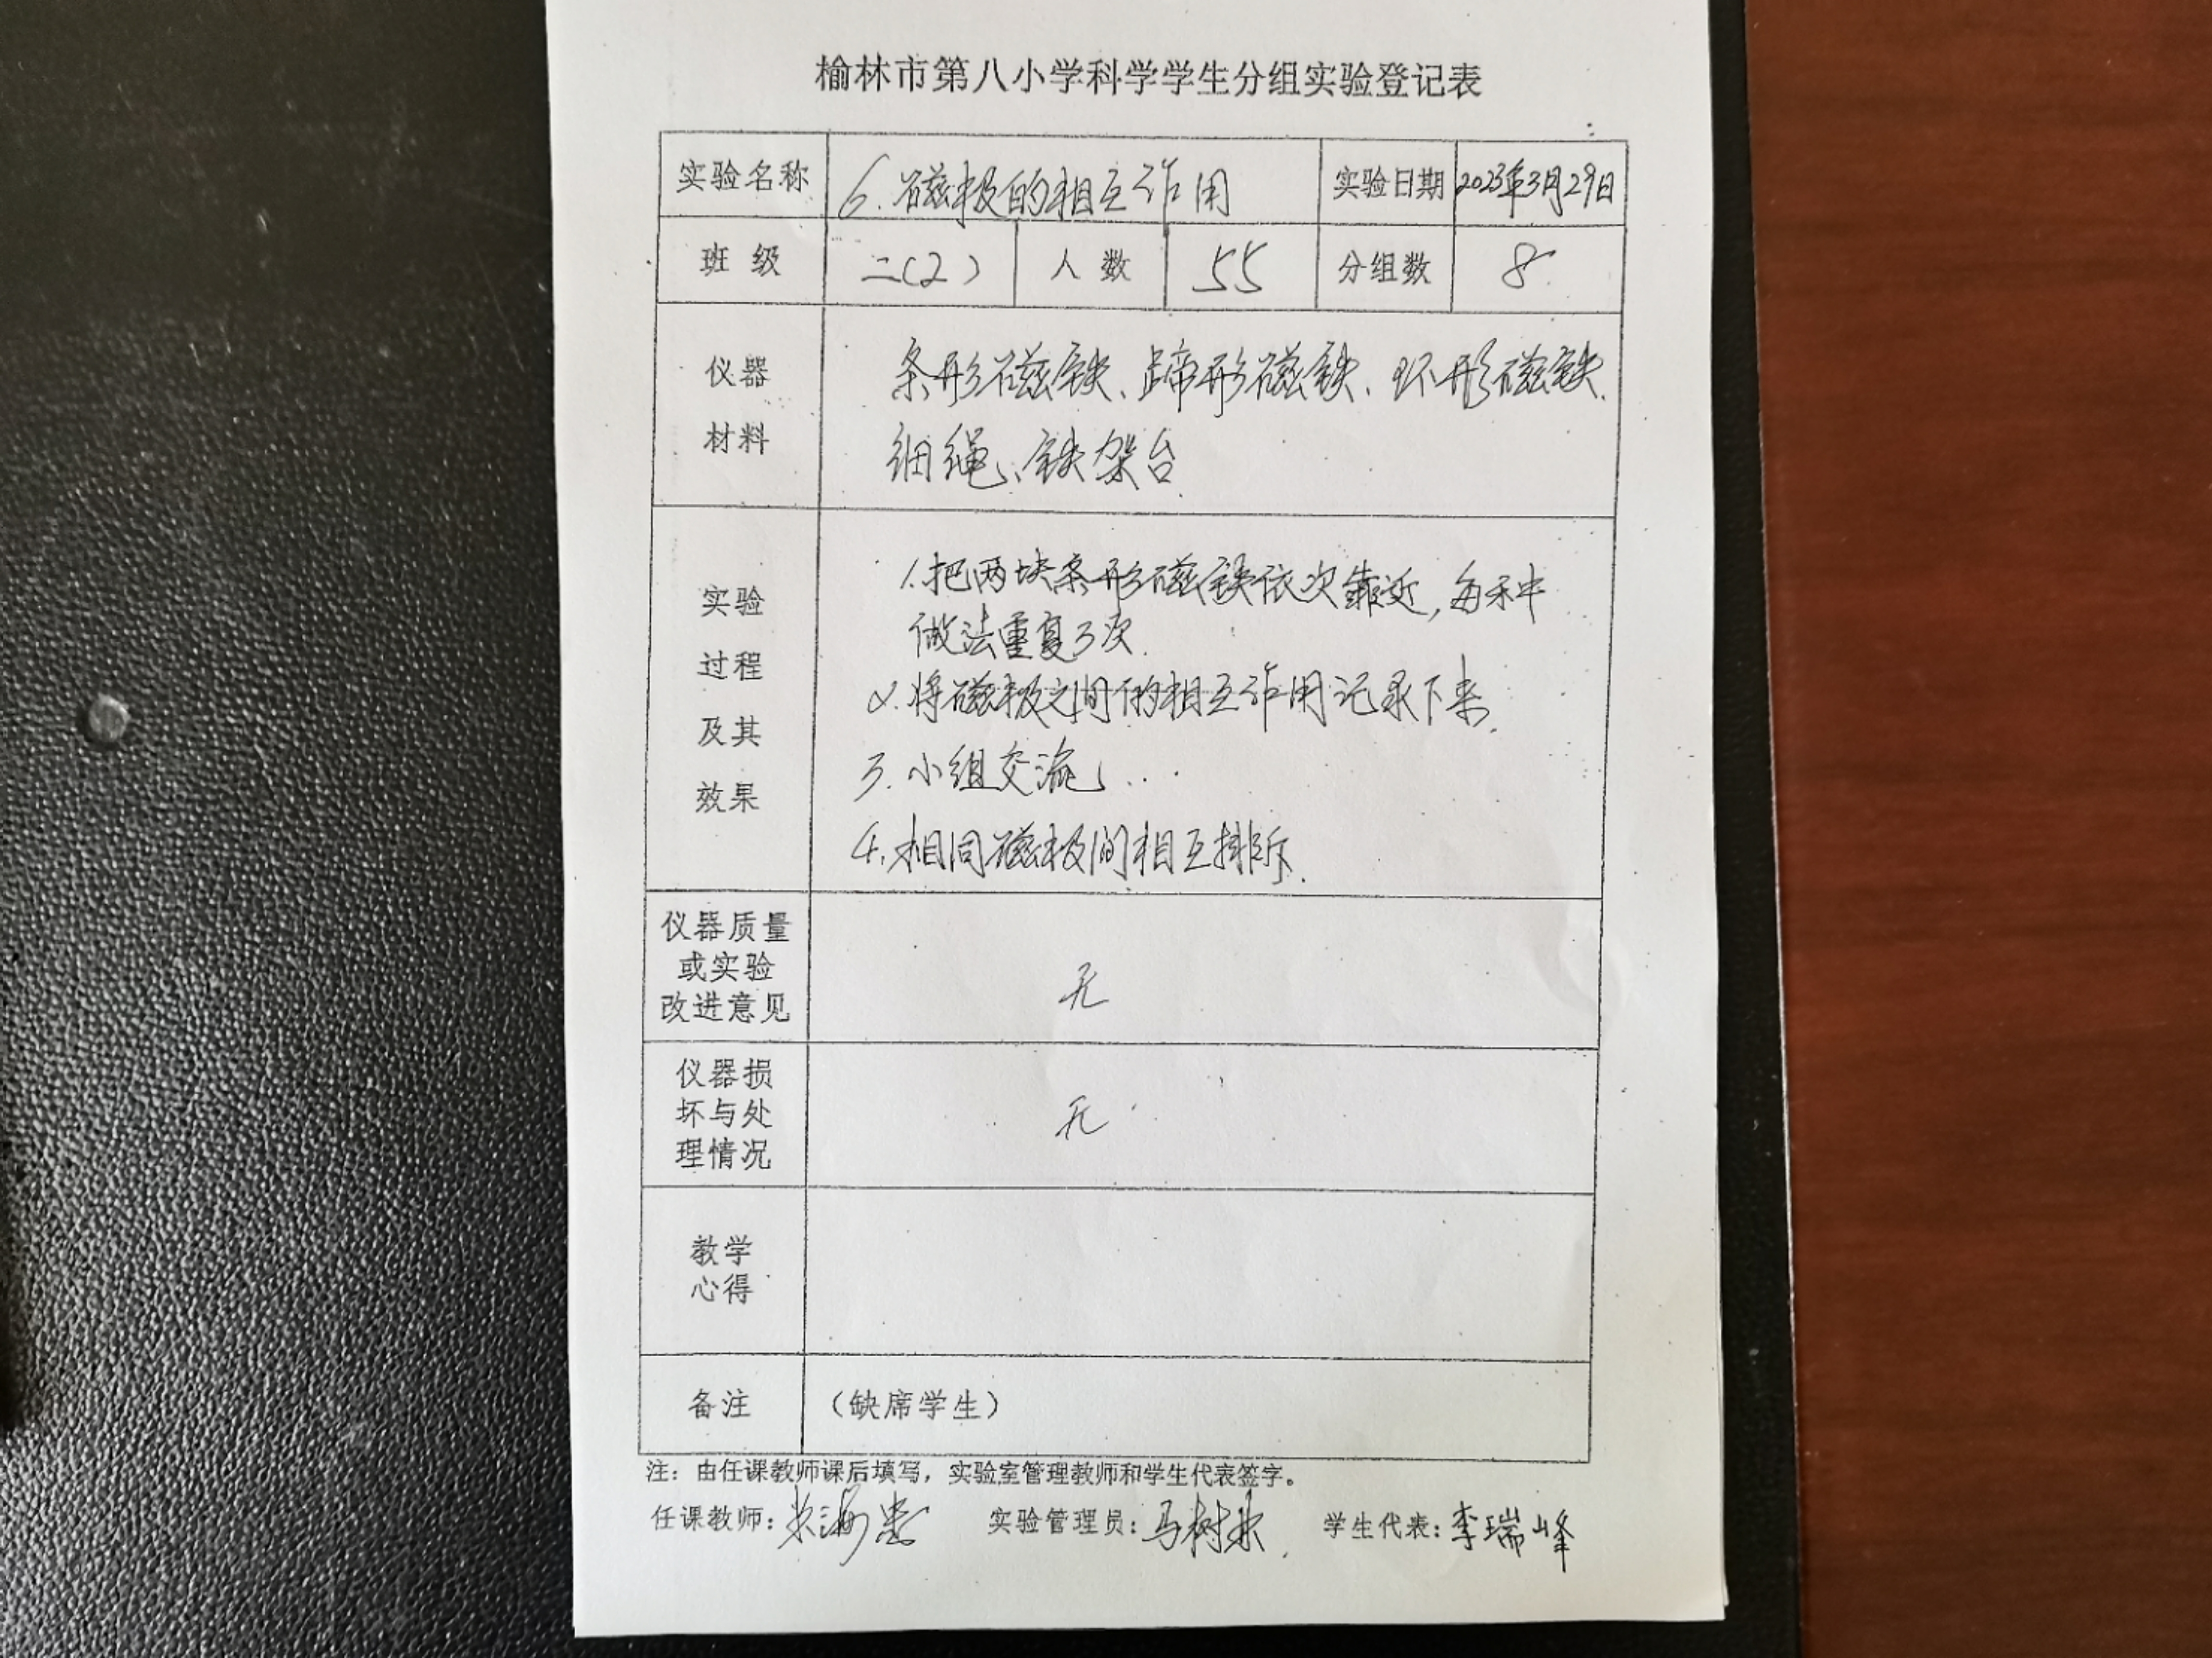 榆林市第八小学科学学生分组实验登记表
实验名称 6.磁极的相互作用 实验日期 2023年3月29日
班级 二(2) 人数 55 分组数 8
仪器
材料
条形磁铁、蹄形磁铁、环形磁铁、
细绳、铁架台
实验
过程
及其
效果
1.把两块条形磁铁依次靠近,每种
做法重复3次.
2.将磁极之间的相互作用记录下来.
3.小组交流
4.相同磁极间相互排斥.
仪器质量
或实验
改进意见
无
仪器损
坏与处
理情况
无
教学
心得
备注 (缺席学生)
注：由任课教师课后填写，实验室管理教师和学生代表签字。
任课教师: 实验管理员:马树 学生代表:李瑞峰